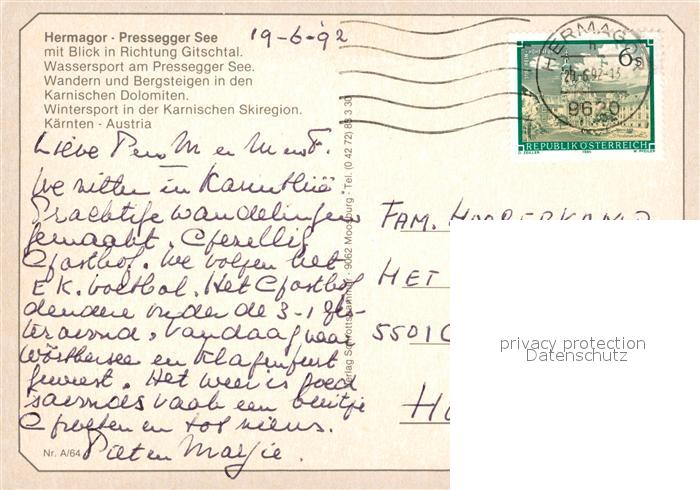 Hermagor · Pressegger See
mit Blick in Richtung Gitschtal.
Wassersport am Pressegger See.
Wandern und Bergsteigen in den
Karnischen Dolomiten.
Wintersport in der Karnischen Skiregion.
Kärnten - Austria
19-6-92
HERMAGOR
20.6.92-13
9620
6s
REPUBLIK ÖSTERREICH
Lieve
We zitten in Karinthië
Prachtige wandelingen
gemaakt. Gezellig
Gasthof. We volgen het
E.K. voetbal. Het Gasthof
dendere onder de 3-1 gis-
teravond. Vandaag naar
Wörthersee en Klagenfurt
geweest. Het weer is goed
's avonds vaak een buitje
Groeten en tot ziens.
Piet en Marjie.
Nr. A/64
9062 Moosburg · Tel. (0 42 72) 83 3 30
FAM.
HET
5501
H
privacy protection
Datenschutz